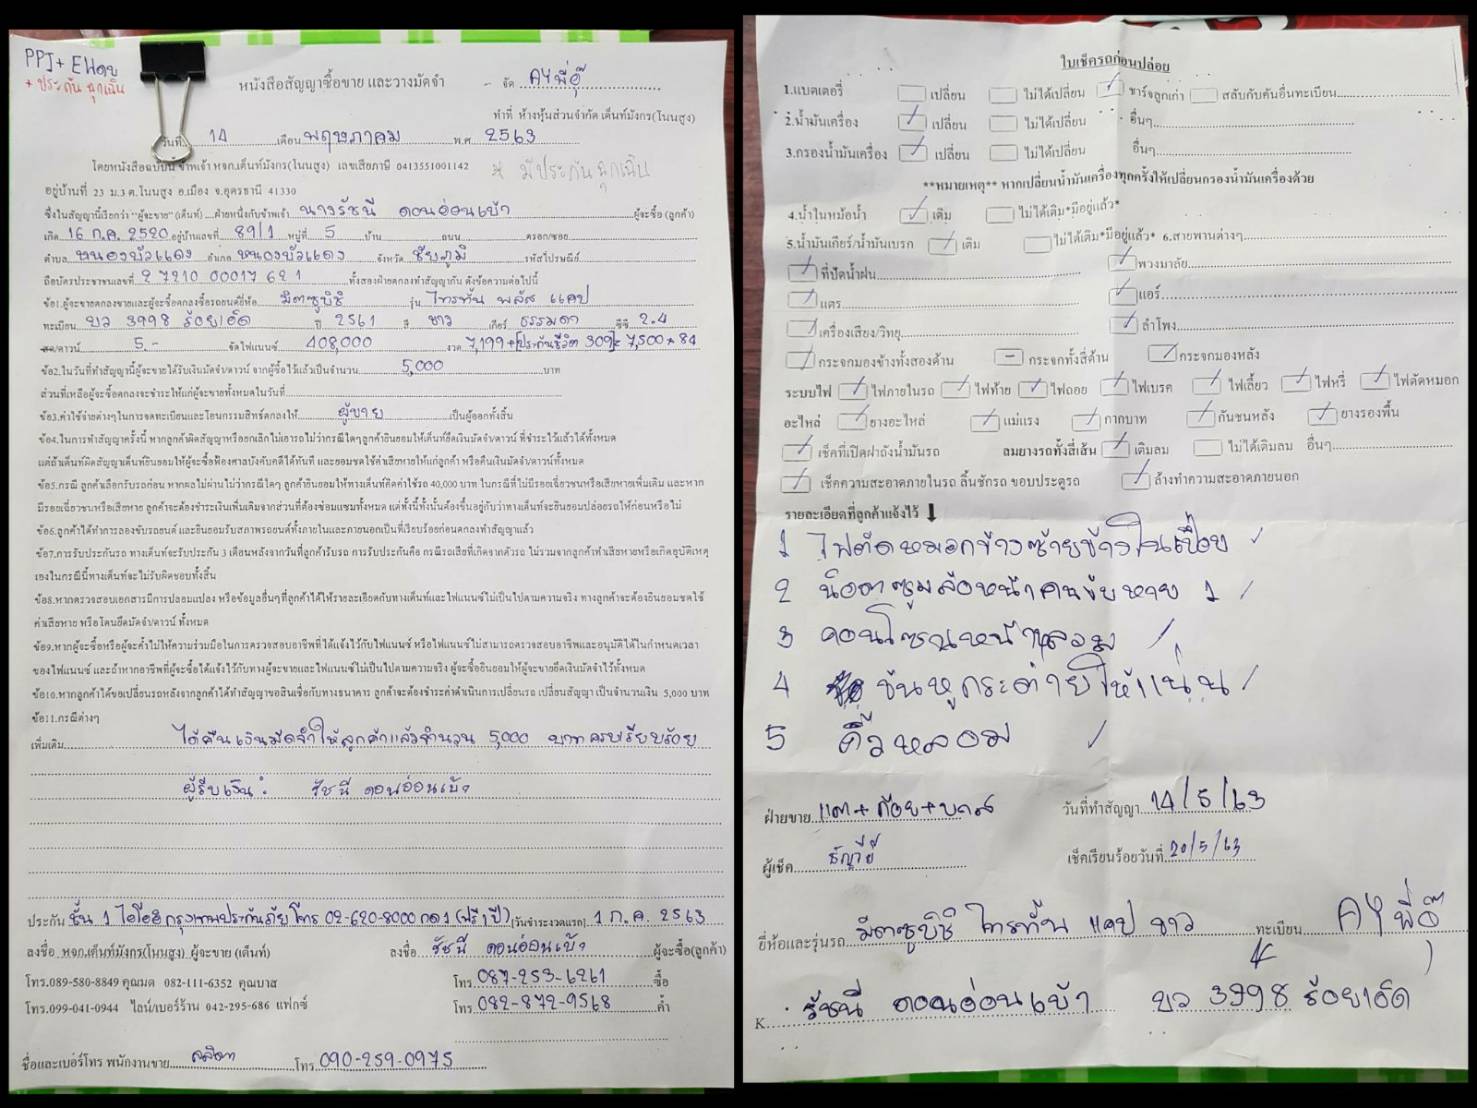 PPI + EW
+ ประกัน ฉุกเฉิน
หนังสือสัญญาซื้อขาย และวางมัดจำ - จัด AY พี่อุ๊
ทำที่ ห้างหุ้นส่วนจำกัด เต็นท์มังกร(โนนสูง)
วันที่ 14 เดือน พฤษภาคม พ.ศ 2563
โดยหนังสือฉบับนี้ ข้าพเจ้า หจก.เต็นท์มังกร(โนนสูง) เลขเสียภาษี 0413551001142 * มีประกัน ฉุกเฉิน
อยู่บ้านที่ 23 ม.3 ต.โนนสูง อ.เมือง จ.อุดรธานี 41330
ซึ่งในสัญญานี้เรียกว่า "ผู้จะขาย" (เต็นท์) ฝ่ายหนึ่งกับข้าพเจ้า นางรัชนี ดอนอ่อนเบ้า ผู้จะซื้อ (ลูกค้า)
เกิด 16 ก.ค. 2520 อยู่บ้านเลขที่ 89/1 หมู่ที่ 5 บ้าน ถนน ตรอก/ซอย
ตำบล หนองบัวแดง อำเภอ หนองบัวแดง จังหวัด ชัยภูมิ รหัสไปรษณีย์
ถือบัตรประชาชนเลขที่ 2 7210 00017 62 1 ทั้งสองฝ่ายตกลงทำสัญญากัน ดังข้อความต่อไปนี้
ข้อ1.ผู้จะขายตกลงขายและผู้จะซื้อตกลงซื้อรถยนต์ยี่ห้อ มิตซูบิชิ รุ่น ไทรทั้น พลัส แคป
ทะเบียน บว 3998 ร้อยเอ็ด ปี 2561 สี ขาว เกียร์ ธรรมดา ซีซี 2.4
สด/ดาวน์ 5.- จัดไฟแนนซ์ 408,000 งวด 7,199+(ประกันชีวิต 309)= 7,500 * 84
ข้อ2.ในวันที่ทำสัญญานี้ผู้จะขายได้รับเงินมัดจำ/ดาวน์ จากผู้ซื้อไว้แล้วเป็นจำนวน 5,000 บาท
ส่วนที่เหลือผู้จะซื้อตกลงจะชำระให้แก่ผู้จะขายทั้งหมดในวันที่
ข้อ3.ค่าใช้จ่ายต่างๆในการจดทะเบียนและโอนกรรมสิทธ์ตกลงให้ ผู้ขาย เป็นผู้ออกทั้งสิ้น
ข้อ4.ในการทำสัญญาครั้งนี้ หากลูกค้าผิดสัญญาหรือยกเลิกไม่เอารถไม่ว่ากรณีใดๆลูกค้ายินยอมให้เต็นท์ยึดเงินมัดจำ/ดาวน์ ที่ชำระไว้แล้วได้ทั้งหมด
แต่ถ้าเต็นท์ผิดสัญญาเต็นท์ยินยอมให้ผู้จะซื้อฟ้องศาลบังคับคดีได้ทันที และยอมชดใช้ค่าเสียหายให้แก่ลูกค้า หรือคืนเงินมัดจำ/ดาวน์ทั้งหมด
ข้อ5.กรณี ลูกค้าเลือกรับรถก่อน หากผลไม่ผ่านไม่ว่ากรณีใดๆ ลูกค้ายินยอมให้ทางเต็นท์คิดค่าใช้รถ 40,000 บาท ในกรณีที่ไม่มีรอยเฉี่ยวชนหรือเสียหายเพิ่มเติม และหาก
มีรอยเฉี่ยวชนหรือเสียหาย ลูกค้าจะต้องชำระเงินเพิ่มเติมจากส่วนที่ต้องซ่อมแซมทั้งหมด แต่ทั้งนี้ทั้งนั้นต้องขึ้นอยู่กับว่าทางเต็นท์จะยินยอมปล่อยรถให้ก่อนหรือไม่
ข้อ6.ลูกค้าได้ทำการลองขับรถยนต์ และยินยอมรับสภาพรถยนต์ทั้งภายในและภายนอกเป็นที่เรียบร้อยก่อนตกลงทำสัญญาแล้ว
ข้อ7.การรับประกันรถ ทางเต็นท์จะรับประกัน 3 เดือนหลังจากวันที่ลูกค้ารับรถ การรับประกันคือ กรณีรถเสียที่เกิดจากตัวรถ ไม่รวมจากลูกค้าทำเสียหายหรือเกิดอุบัติเหตุ
เองในกรณีนี้ทางเต็นท์จะไม่รับผิดชอบทั้งสิ้น
ข้อ8.หากตรวจสอบเอกสารมีการปลอมแปลง หรือข้อมูลอื่นๆที่ลูกค้าได้ให้รายละเอียดกับทางเต็นท์และไฟแนนซ์ไม่เป็นไปตามความจริง ทางลูกค้าจะต้องยินยอมชดใช้
ค่าเสียหาย หรือโดนยึดมัดจำ/ดาวน์ ทั้งหมด
ข้อ9.หากผู้จะซื้อหรือผู้จะค้ำไม่ให้ความร่วมมือในการตรวจสอบอาชีพที่ได้แจ้งไว้กับไฟแนนซ์ หรือไฟแนนซ์ไม่สามารถตรวจสอบอาชีพและอนุมัติได้ในกำหนดเวลา
ของไฟแนนซ์ และถ้าหากอาชีพที่ผู้จะซื้อได้แจ้งไว้กับทางผู้จะขายและไฟแนนซ์ไม่เป็นไปตามความจริง ผู้จะซื้อยินยอมให้ผู้จะขายยึดเงินมัดจำไว้ทั้งหมด
ข้อ10.หากลูกค้าได้ขอเปลี่ยนรถหลังจากลูกค้าได้ทำสัญญาขอสินเชื่อกับทางธนาคาร ลูกค้าจะต้องชำระค่าดำเนินการเปลี่ยนรถ เปลี่ยนสัญญา เป็นจำนวนเงิน 5,000 บาท
ข้อ11.กรณีต่างๆ
เพิ่มเติม ได้คืนเงินมัดจำให้ลูกค้าแล้วจำนวน 5,000 บาท ครบเรียบร้อย
ผู้รับเงิน : รัชนี ดอนอ่อนเบ้า
ประกัน ชั้น 1 ไอโออิกรุงเทพประกันภัย โทร 02-620-8000 กด 1 (ฟรี 1 ปี) (วันชำระงวดแรก) 1 ก.ค. 2563
ลงชื่อ หจก.เต็นท์มังกร(โนนสูง) ผู้จะขาย (เต็นท์) ลงชื่อ รัชนี ดอนอ่อนเบ้า ผู้จะซื้อ(ลูกค้า)
โทร.089-580-8849 คุณมด 082-111-6352 คุณบาส โทร. 087-253-6261 ซื้อ
โทร.099-041-0944 ไลน์/เบอร์ร้าน 042-295-686 แฟกซ์ โทร. 082-872-9568 ค้ำ
ชื่อและเบอร์โทร พนักงานขาย โทร. 090-259-0975
ใบเช็ครถก่อนปล่อย
1.แบตเตอรี่ เปลี่ยน ไม่ได้เปลี่ยน ชาร์จลูกเก่า สลับกับคันอื่นทะเบียน
2.น้ำมันเครื่อง เปลี่ยน ไม่ได้เปลี่ยน อื่นๆ
3.กรองน้ำมันเครื่อง เปลี่ยน ไม่ได้เปลี่ยน อื่นๆ
**หมายเหตุ** หากเปลี่ยนน้ำมันเครื่องทุกครั้งให้เปลี่ยนกรองน้ำมันเครื่องด้วย
4.น้ำในหม้อน้ำ เติม ไม่ได้เติม*มีอยู่แล้ว*
5.น้ำมันเกียร์/น้ำมันเบรก เติม ไม่ได้เติม*มีอยู่แล้ว* 6.สายพานต่างๆ
ที่ปัดน้ำฝน พวงมาลัย
แตร แอร์
เครื่องเสียง/วิทยุ ลำโพง
กระจกมองข้างทั้งสองด้าน กระจกทั้งสี่ด้าน กระจกมองหลัง
ระบบไฟ ไฟภายในรถ ไฟท้าย ไฟถอย ไฟเบรค ไฟเลี้ยว ไฟหรี่ ไฟตัดหมอก
อะไหล่ ยางอะไหล่ แม่แรง กากบาท กันชนหลัง ยางรองพื้น
เช็คที่เปิดฝาถังน้ำมันรถ ลมยางรถทั้งสี่เส้น เติมลม ไม่ได้เติมลม อื่นๆ
เช็คความสะอาดภายในรถ ลิ้นชักรถ ขอบประตูรถ ล้างทำความสะอาดภายนอก
รายละเอียดที่ลูกค้าแจ้งไว้ ⬇
1 ไฟตัดหมอกข้างซ้ายข้างในเปื่อย
2 น็อตาซูมล้อหน้าคนขับหาย 1
3 คอนโซนหน้าหลวม
4 ขันหูกระต่ายให้แน่น
5 คิ้วหลวม
ฝ่ายขาย แต+ก้อย+บาส วันที่ทำสัญญา 14/5/63
ผู้เช็ค เช็คเรียบร้อยวันที่ 20/5/63
ยี่ห้อและรุ่นรถ มิตซูบิชิ ไทรทั้น แคป ขาว ทะเบียน AY พี่อุ๊
K. รัชนี ดอนอ่อนเบ้า บว 3998 ร้อยเอ็ด